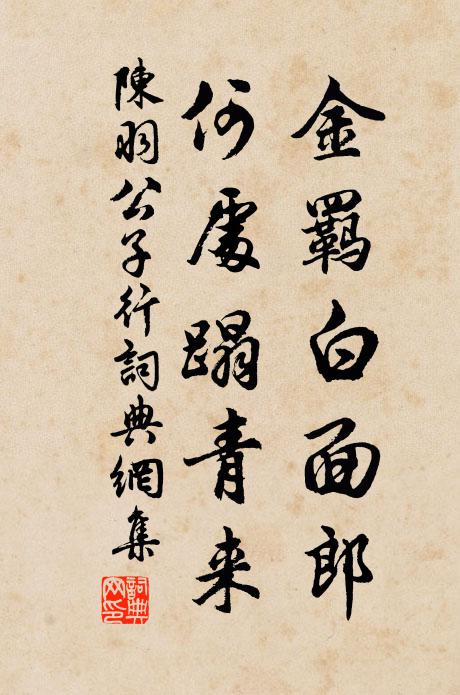 金羈白面郎
何處蹋青来
陳羽公子行詞典網集
詞典网印